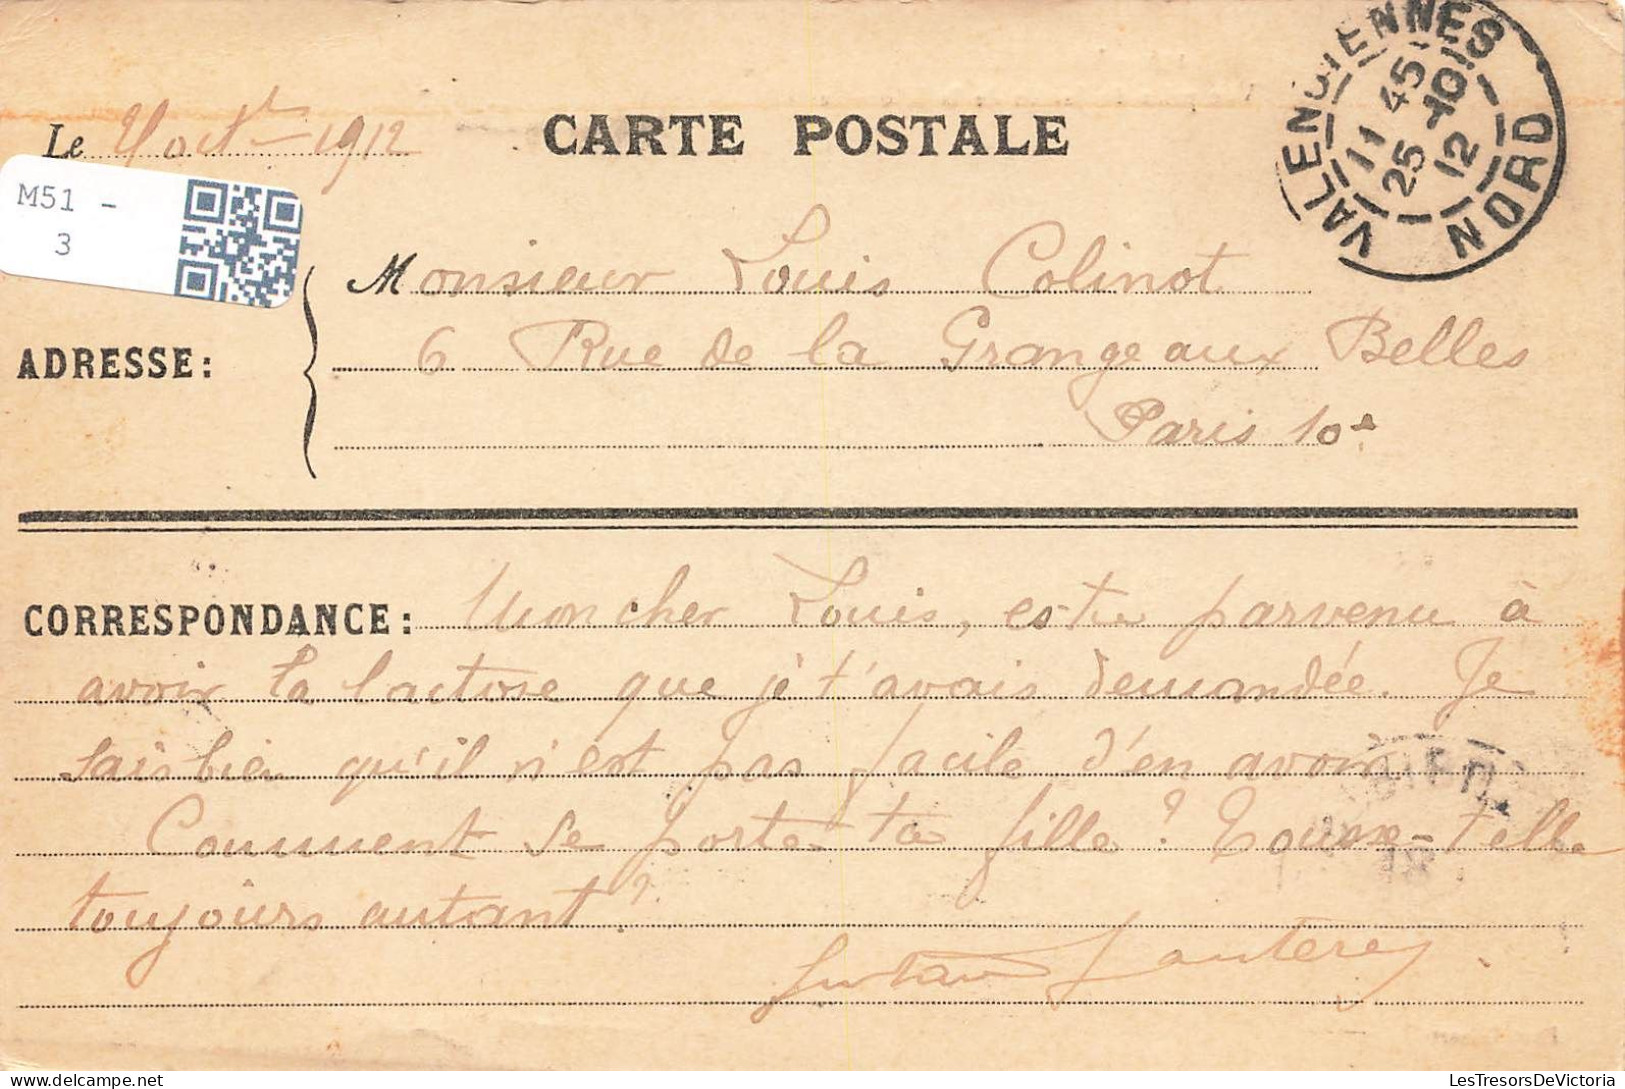 CARTE POSTALE
Le oct 1912
VALENCIENNES
11 45
25 -10
12
NORD
M51 -
3
Monsieur Louis Colinot
ADRESSE: 6 Rue de la Grange aux Belles
Paris 10e
CORRESPONDANCE: Mon cher Louis, es-tu parvenu à
avoir la lactose que je t'avais demandée. Je
sais bien qu'il n'est pas facile d'en avoir
Comment se porte ta fille? Tousse-telle
toujours autant?
LesTresorsDeVictoria